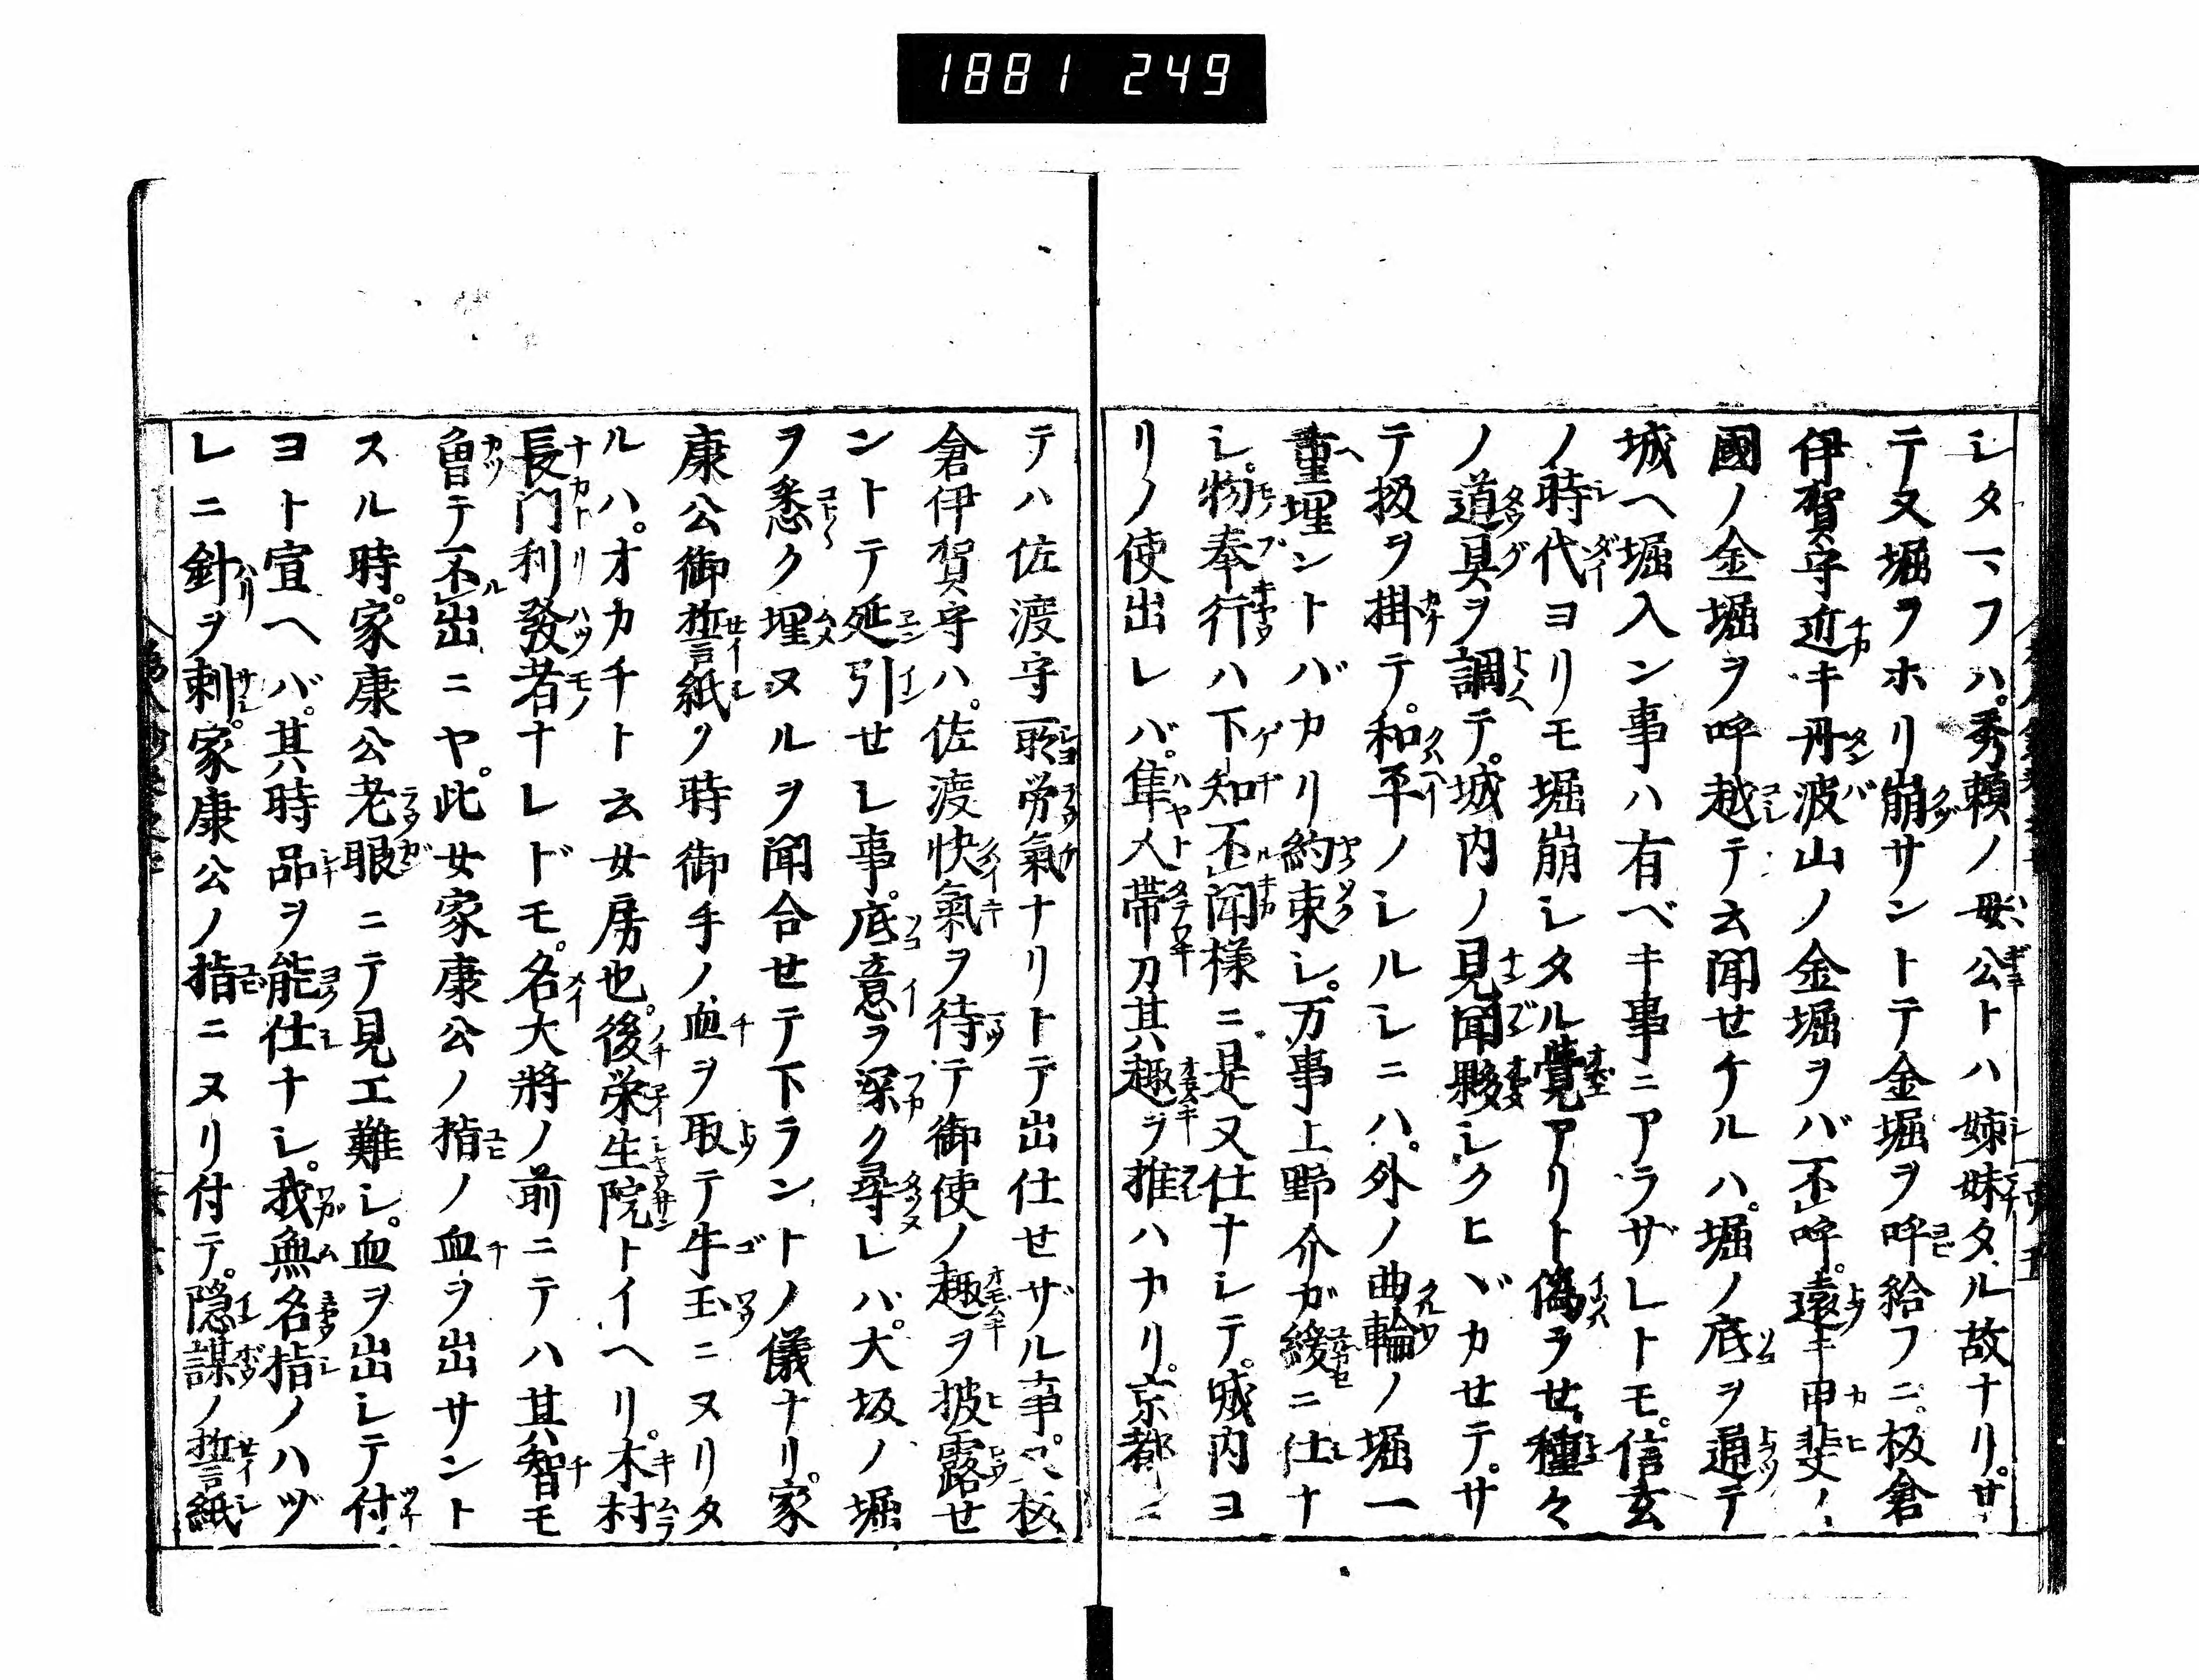 1881 249
レタマフハ。秀頼ノ母公トハ姉妹タル故ナリ。サ
テ又堀ヲホリ崩サントテ金堀ヲ呼給フニ。板倉
伊賀守近キ丹波山ノ金堀ヲバ不呼。遠キ甲斐ノ
國ノ金堀ヲ呼越テ云聞せケルハ。堀ノ底ヲ通テ
城ヘ堀入ン事ハ有ベキ事ニアラザレトモ。信玄
ノ時代ヨリモ堀崩シタル覚アリト偽ラせ。種々
ノ道具ヲ調テ。城内ノ見聞夥シクヒヾカせテ。サ
テ扱ヲ掛テ。和平ノシルシニハ。外ノ曲輪ノ堀一
重埋ントバカリ約束シ。万事上野介が緩ニ仕ナ
シ。物奉行ハ下知不聞様ニ。是又仕ナシテ。城内ヨ
リノ使出レバ。隼人帯刀其趣ヲ推ハカリ。京都ニ
テハ佐渡守聊労氣ナリトテ出仕せザル事。板
倉伊賀守ハ。佐渡快氣ヲ待テ御使ノ趣ヲ披露せ
ントテ延引せシ事。底意ヲ深ク尋レバ。大坂ノ堀
ヲ悉ク埋ヌルヲ聞合せテ下ラントノ儀ナリ。家
康公御誓紙ノ時御手ノ血ヲ取テ牛王ニヌリタ
ルハ。オカチト云女房也。後栄生院トイヘリ。木村
長門利發者ナレドモ。名大將ノ前ニテハ其智モ
曽テ不出ニヤ。此女家康公ノ指ノ血ヲ出サント
スル時。家康公老眼ニテ見エ難シ。血ヲ出シテ付
ヨト宣ヘバ。其時品ヲ能仕ナシ。我無名指ノハヅ
レニ針ヲ刺。家康公ノ指ニヌリ付テ。隠謀ノ誓紙